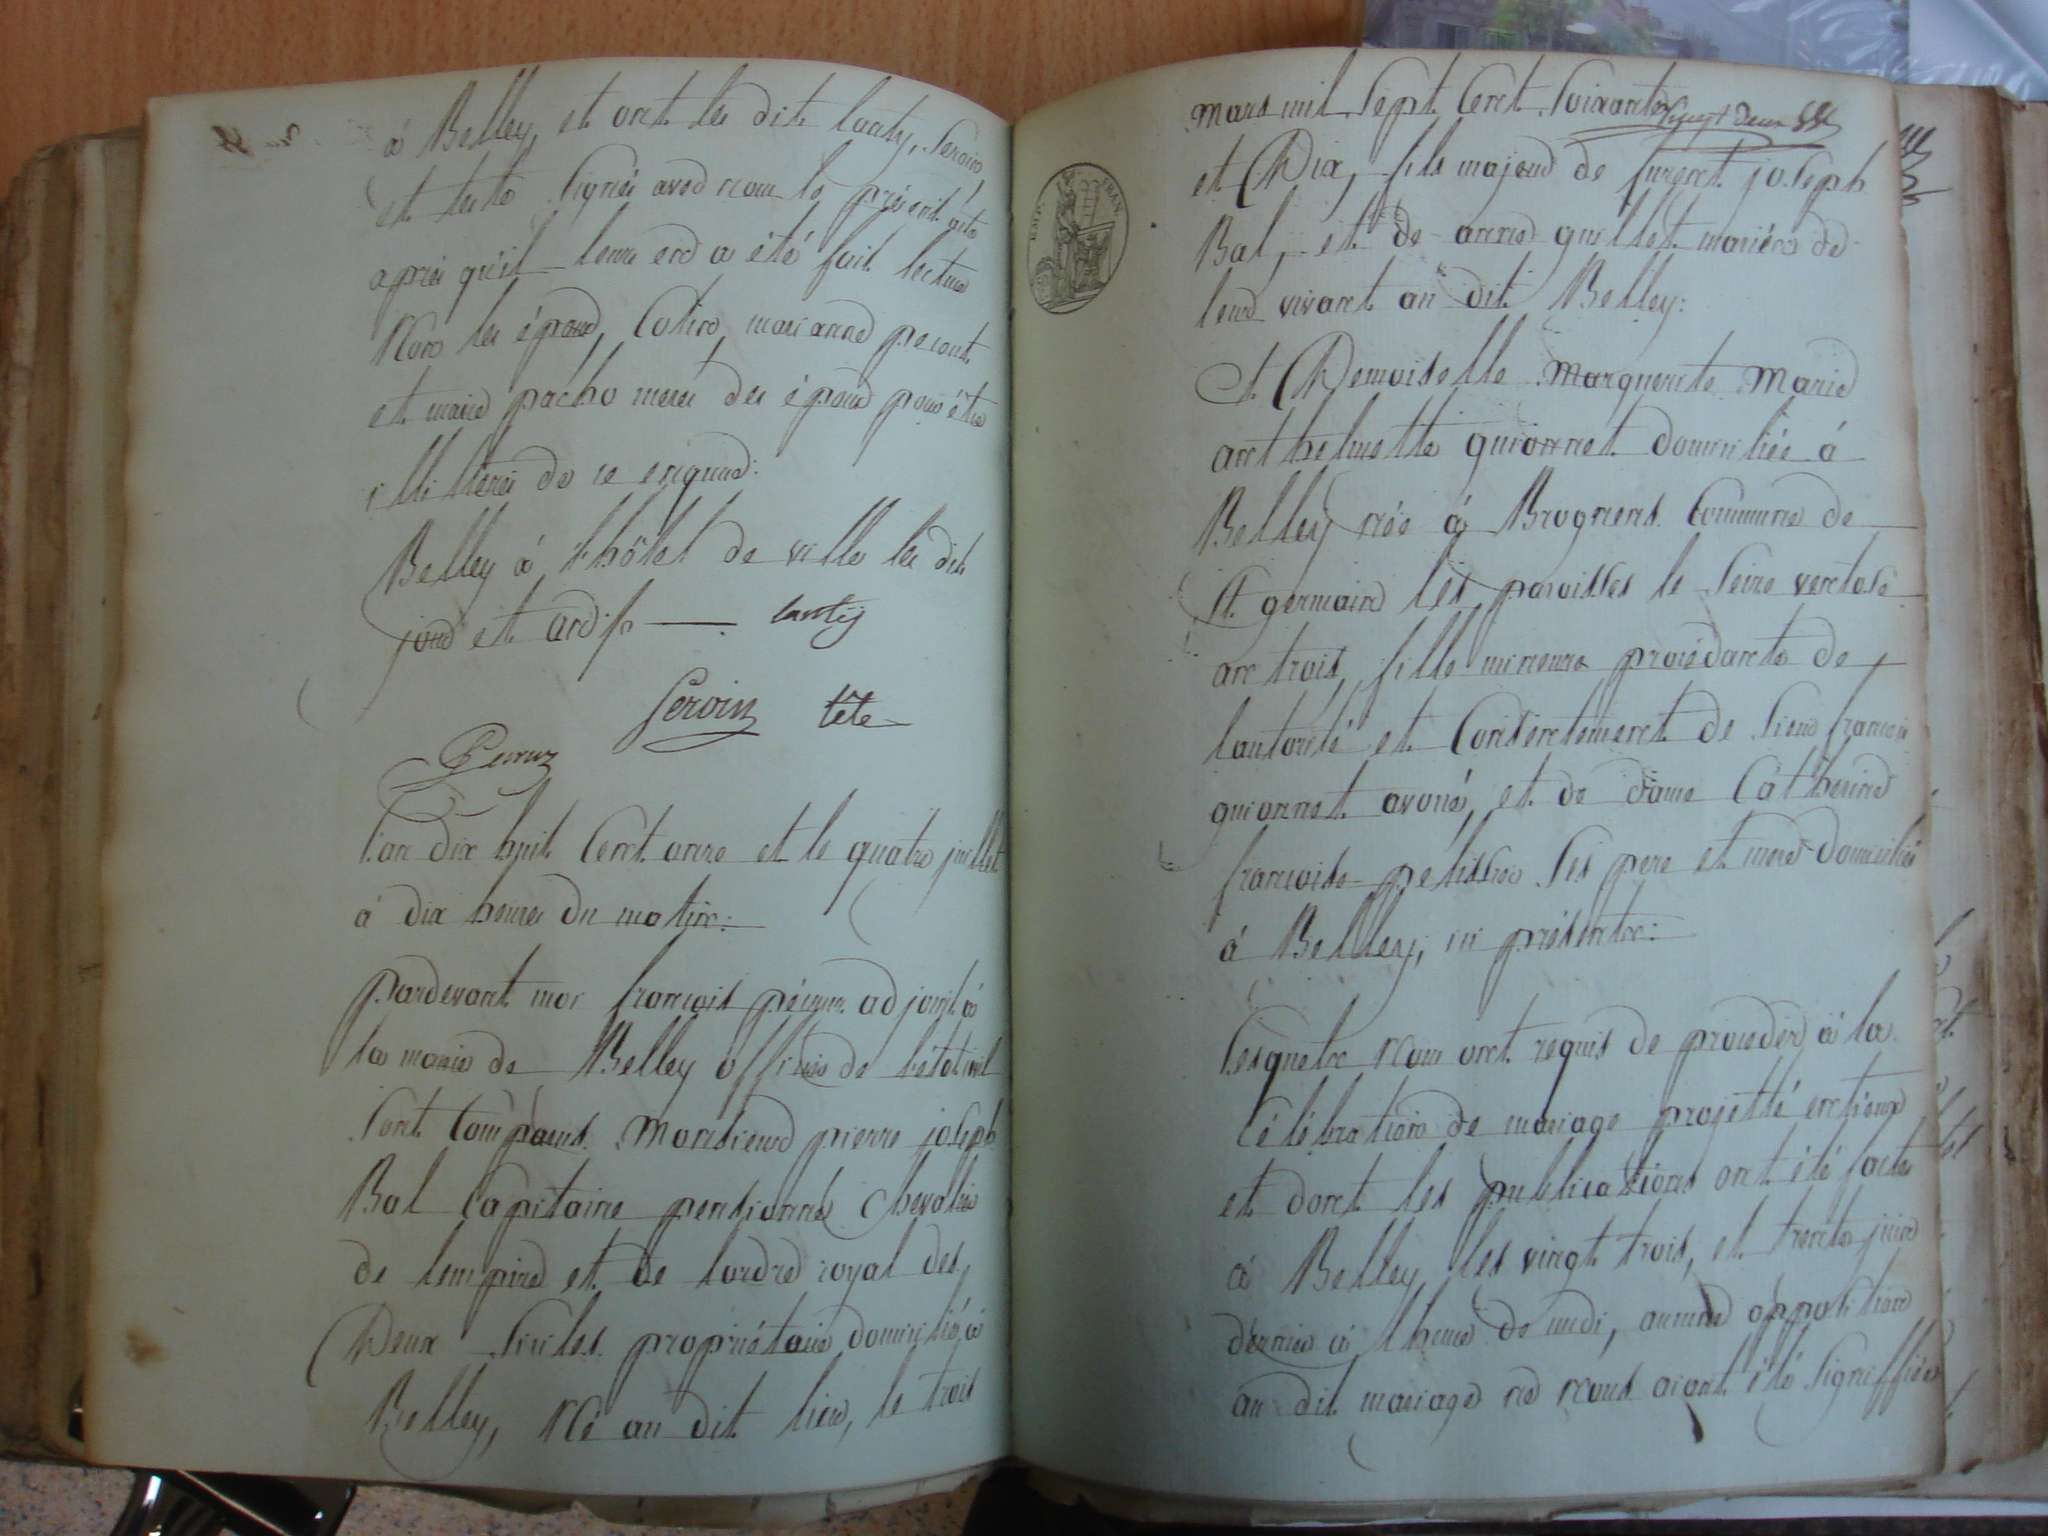 à Belley, et ont les dit lanty, Servin,
et tête signés avec nous le présent acte
après qu'il leurs en a été fait lecture
Non les époux, Cotin, marianne
et marie pacho meres des époux pour être
illitérés de ce enquis:
Belley à l'hôtel de ville les dit
jour et an d/s — lantÿ
Servin tête
l'an dix huit Cent onze et le quatre juillet
à dix heures du matin:
Pardevant moi françois adjoint à
la mairie de Belley officier de l'état civil
sont Comparus Monsieur pierre joseph
Bal Capitaine pensionné Chevalier
de lempire et de lordre royal des
Deux Siciles propriétaire domicilié à
Belley, Né au dit lieu, le trois
vingt deux
mars mil Sept Cent Soixante
et Dix, fils majeur de furent joseph
Bal, et de anne guillet mariés de
leur vivant au dit Belley:
Et Demoiselle Marguerite Marie
anthelmette guionnet domiciliée à
Belley née à Brognens Commune de
St. germain les paroisses le seize ventose
an trois, fille mineure procédante de
lautorité et Consentement de sieur françois
guionnet avoué, et de dame Catherine
françoise pelissier ses pere et mere domiciliés
à Belley, ici présents:
Lesquels Nous ont requis de procéder à la
Célébration de mariage projetté entr'eux
et dont les publications ont été faites
à Belley les vingt trois, et trente juin
dernier à lheure de midi, aucune opposition
au dit mariage ne nous aiant été signiffiée
EMP. FRAN.